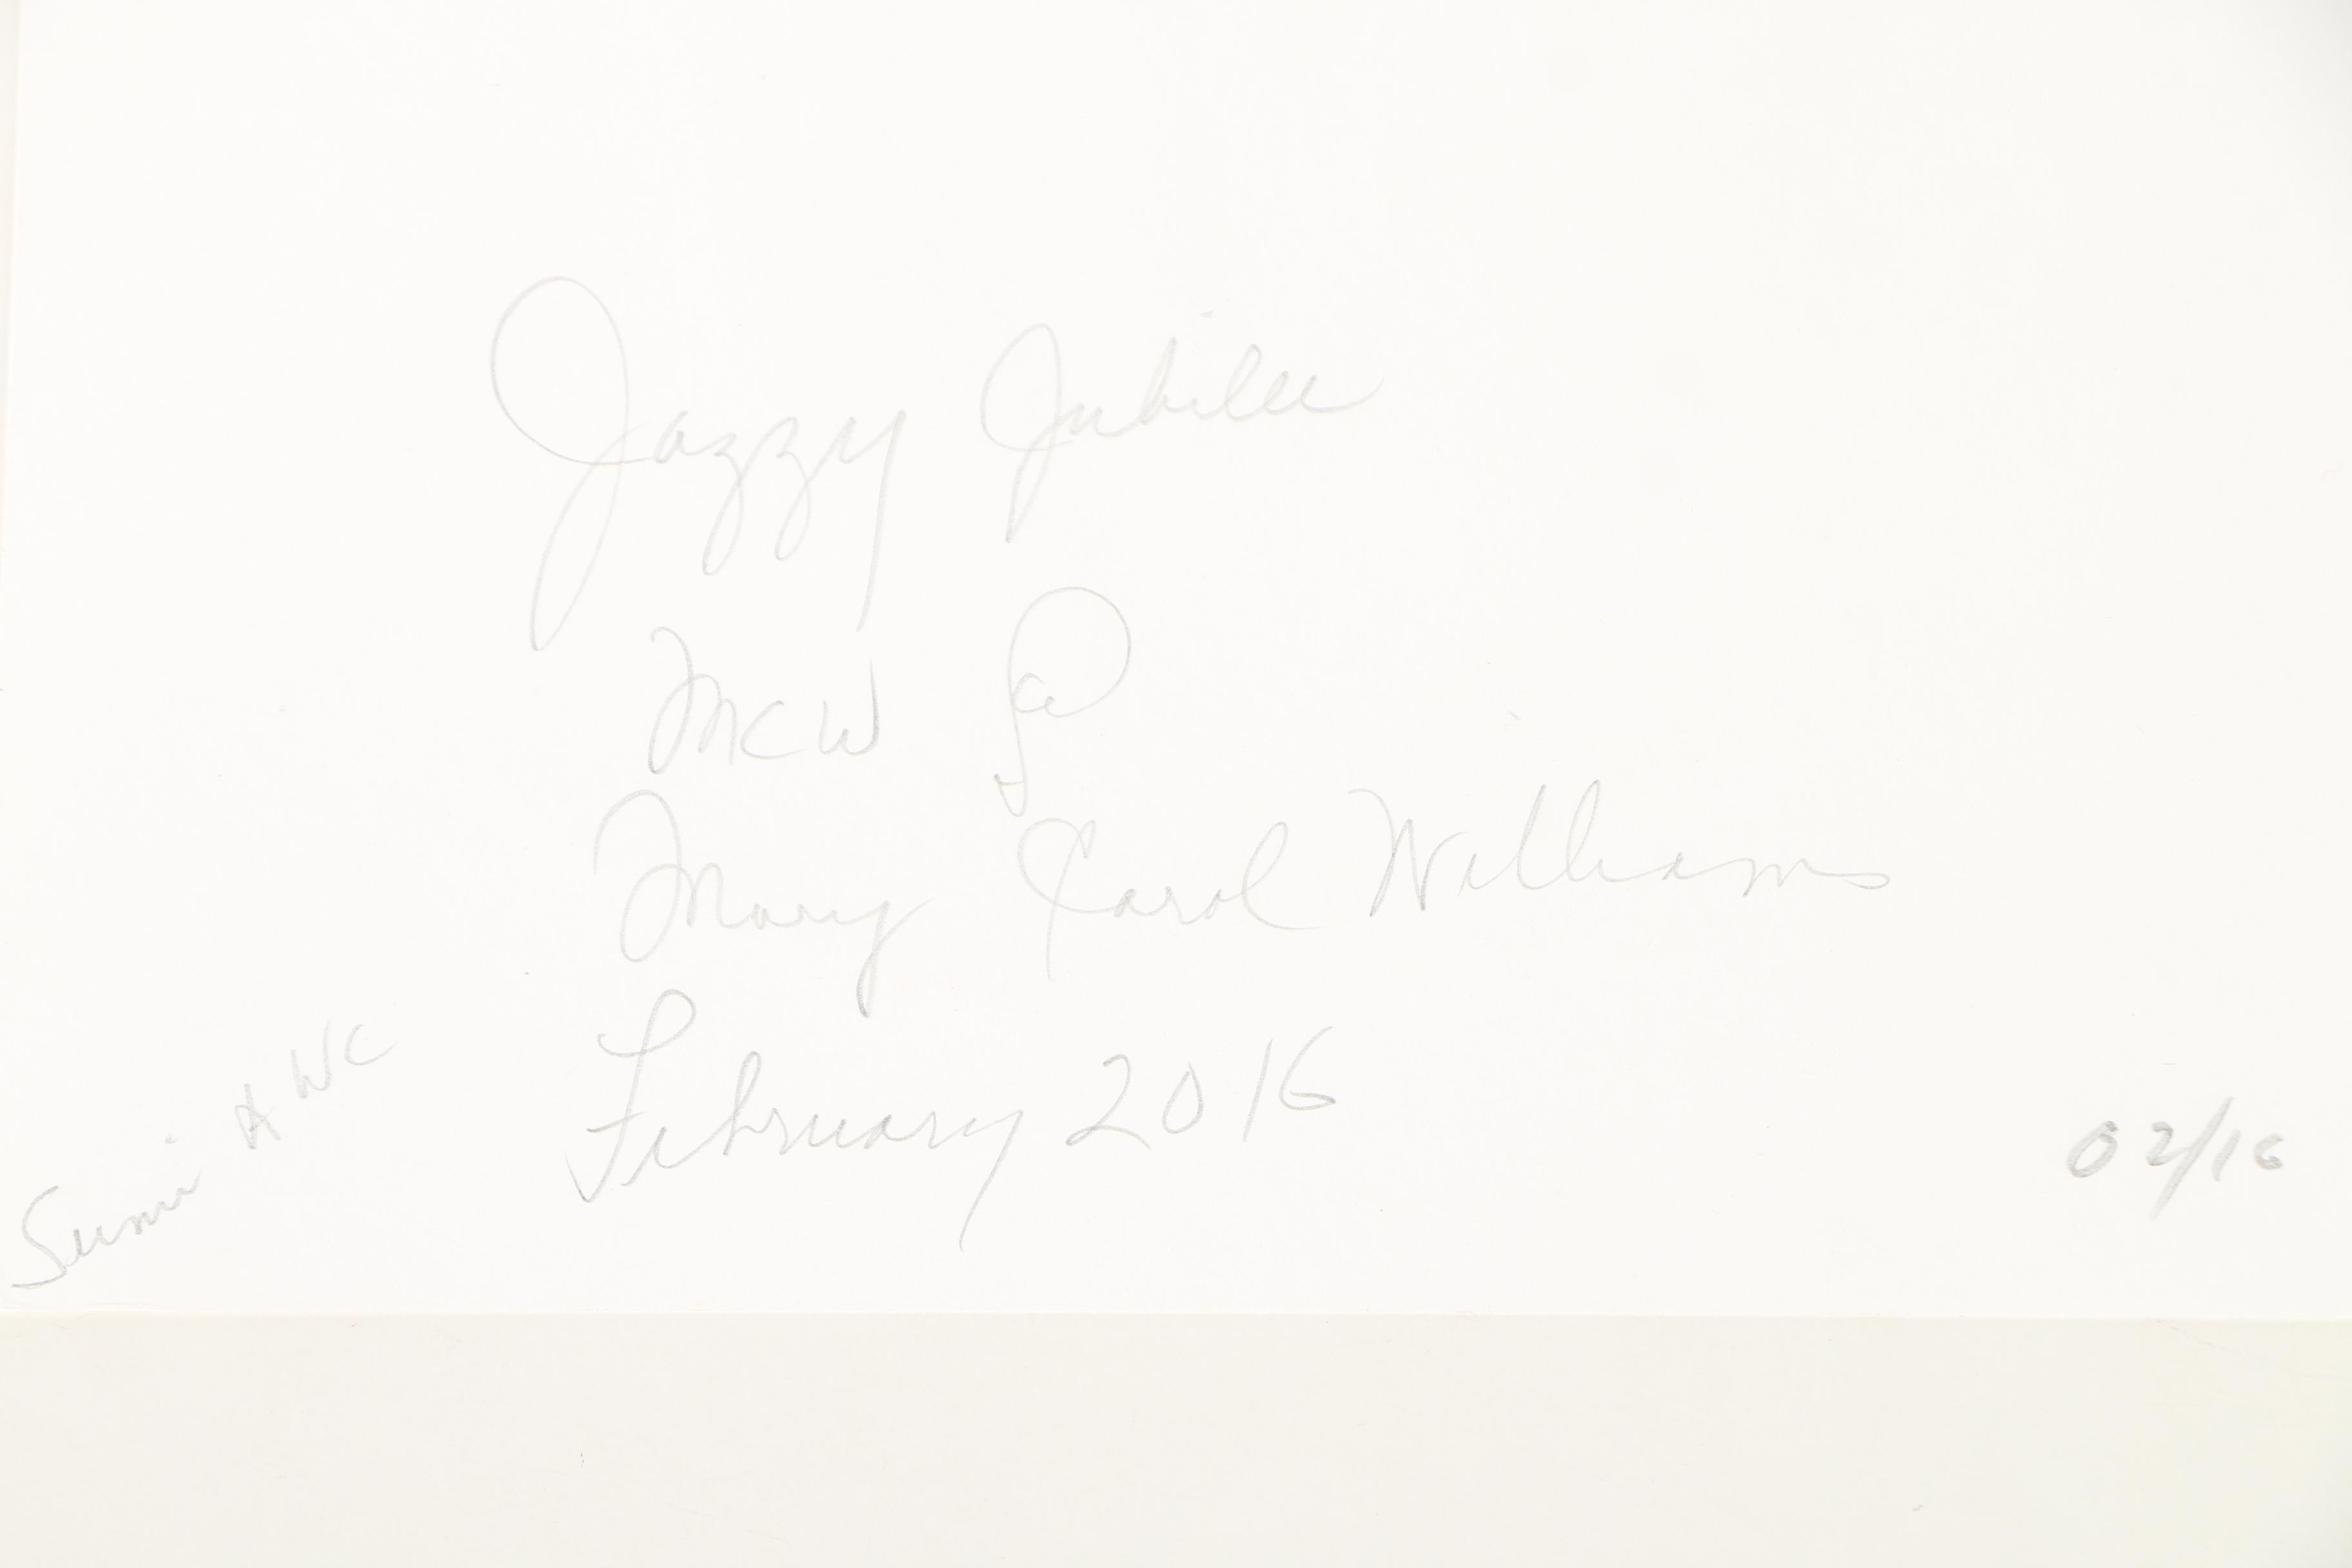 Jazzy Jubilee
MCW
Mary Carol Williams
February 2016
Sumi A WC
02/16